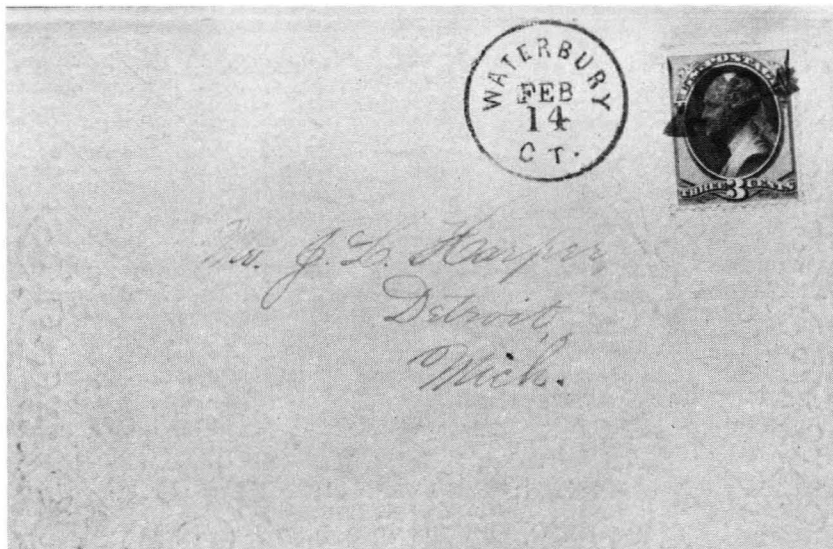 WATERBURY
FEB
14
CT.
U.S. POSTAGE
THREE 3 CENTS
Mr. J. L. Harper,
Detroit,
Mich.